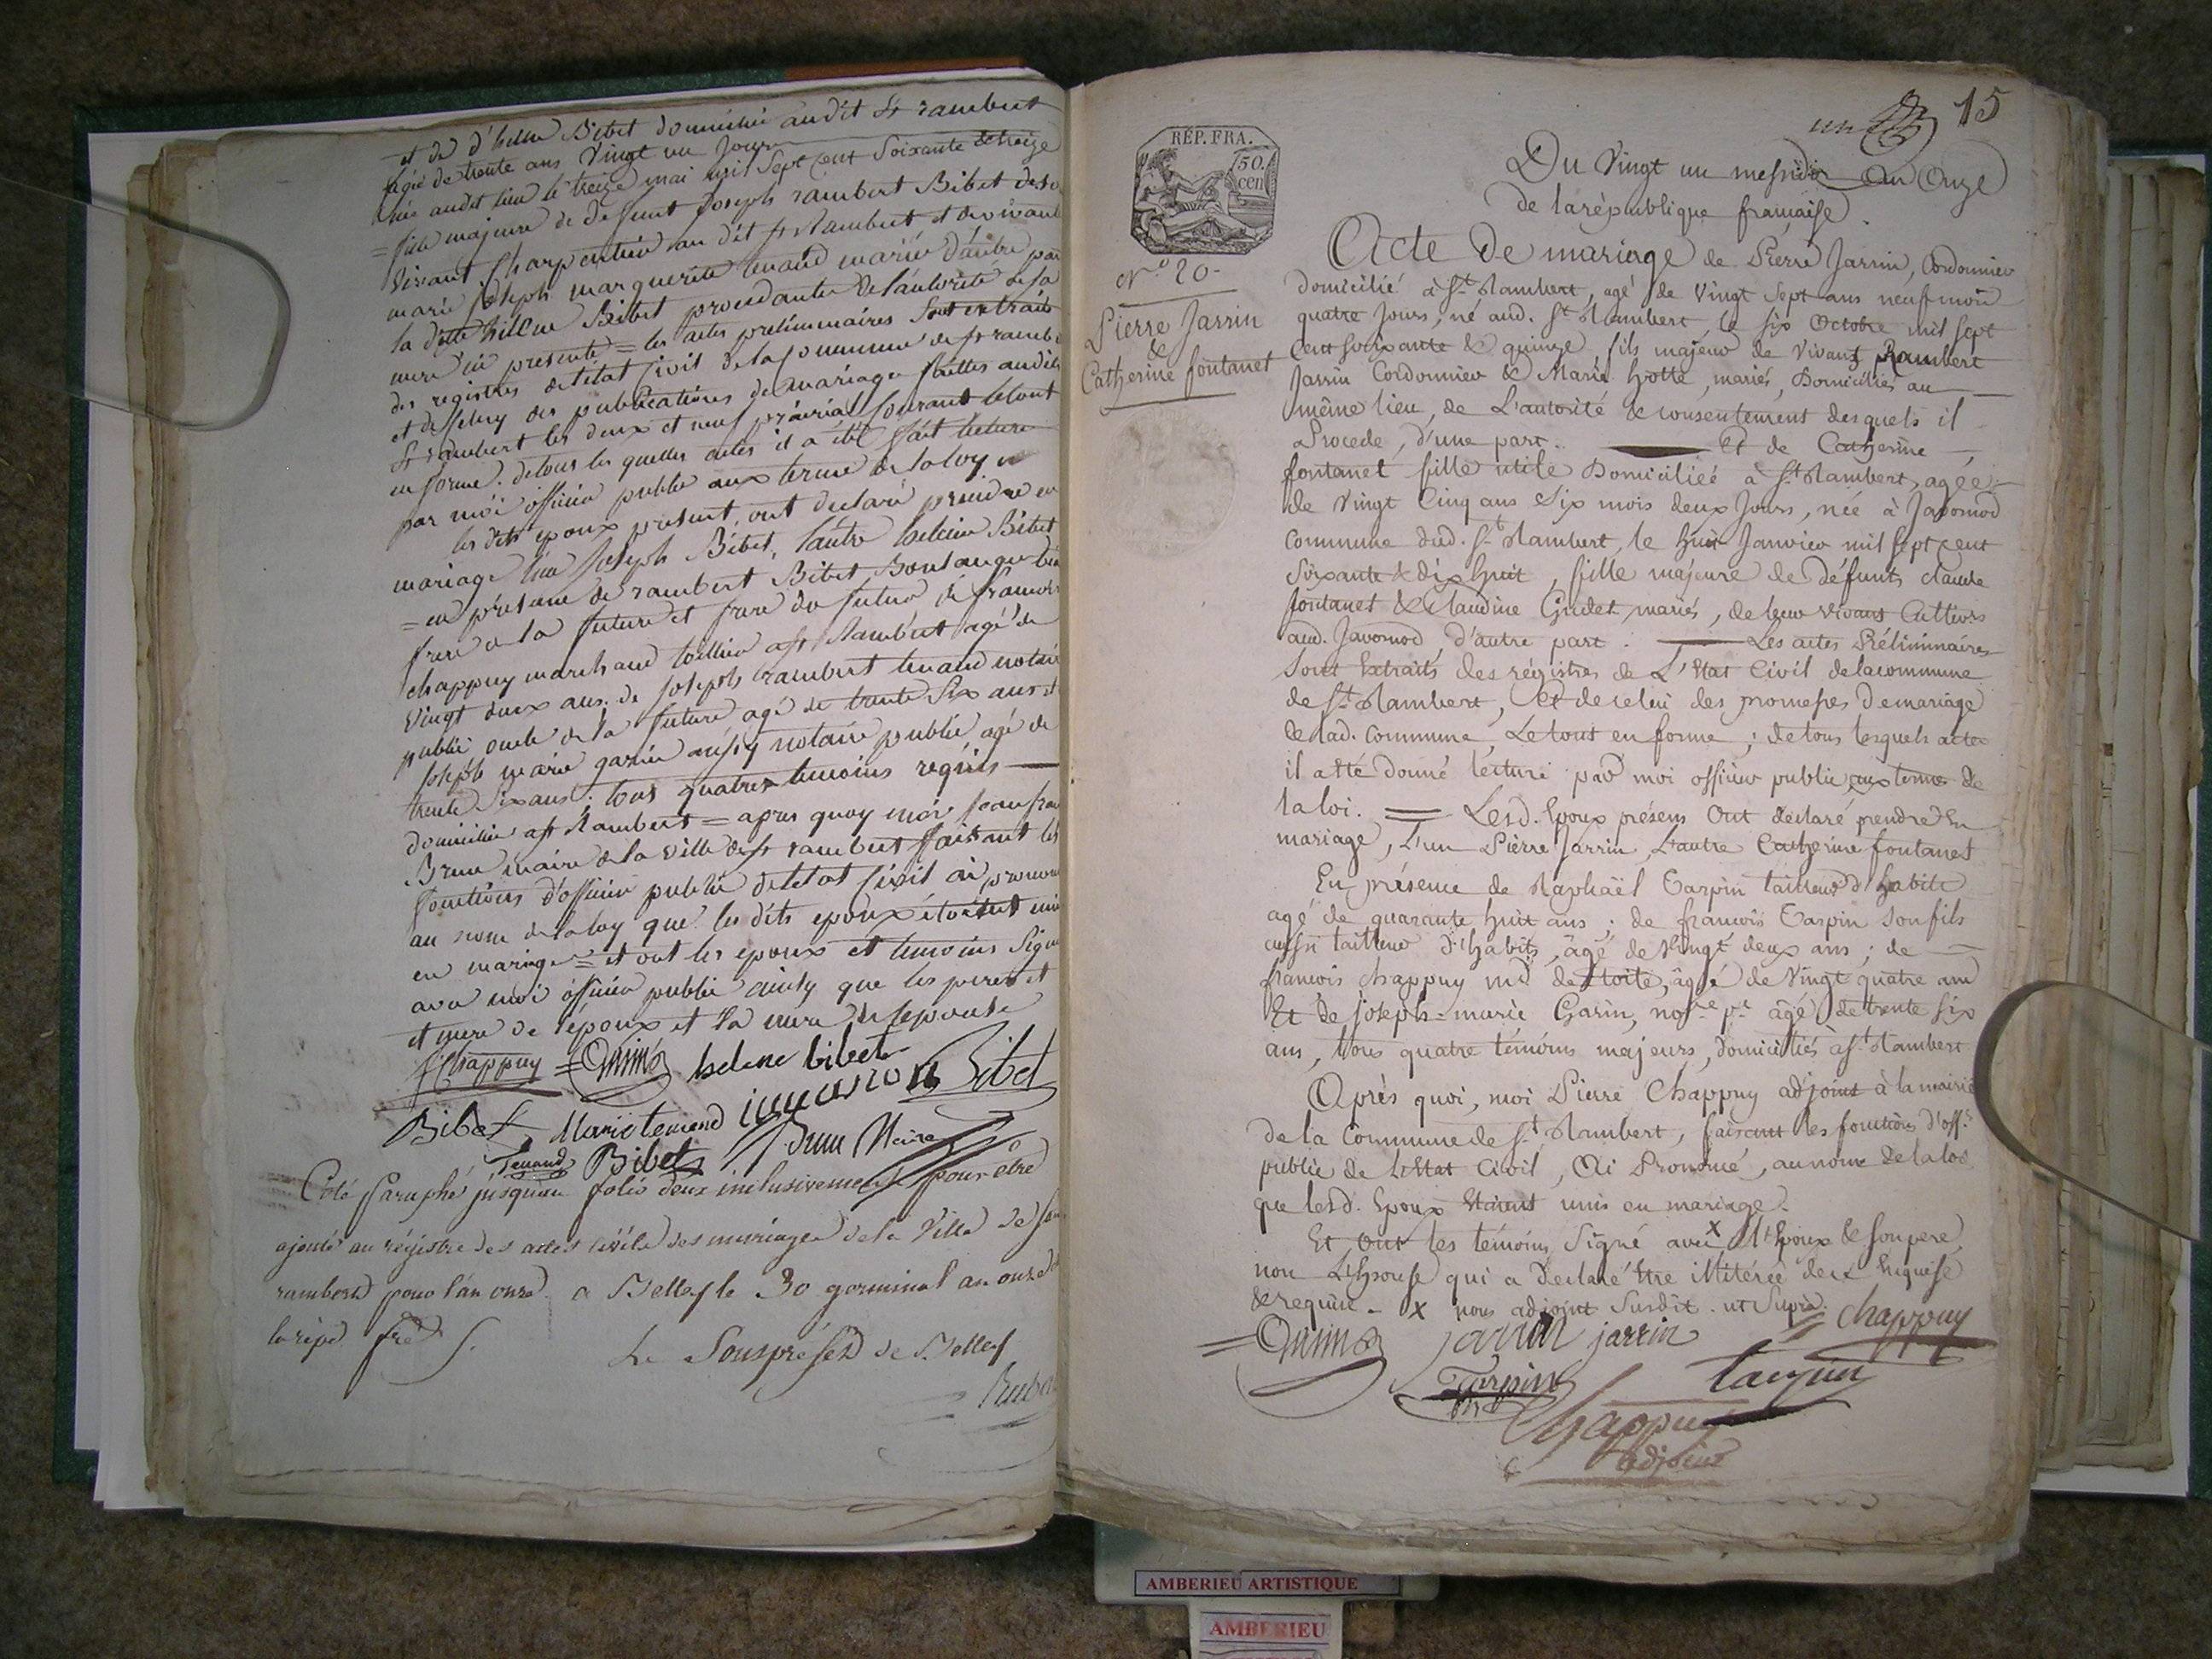 et de d'helene Bibet domiciliée audit St rambert
agée de trente ans vingt un jour
née audit lieu le treize mai mil sept cent soixante et treize
= fille majeure de defunt Joseph rambert Bibet de son
vivant charpentier au dit St Rambert et de vivante
marie joseph marguerite tenand mariés d'autre part
la ditte hellene Bibet procedante de l'autorité de sa
mere ici presente = les actes preliminaires sont extraits
des registres de l'etat civil de la commune de St rambert
et de celuy des publications de mariage faittes audit
St rambert les deux et neuf prairial courant le tout
en forme. de tous les quelles actes il a été fait lecture
par moi officier public aux terme de la loy
les dits epoux présent ont declaré prendre en
mariage l'un Joseph Bibet, l'autre helene Bibet
= en présence de rambert Bibet Boulanger
frere de la future et frere du futur de francois
chappuy marchand toillier a St Rambert agé de
vingt deux ans. de joseph rambert tenand notaire
public oncle de la future agé de trente six ans et
joseph marie garin aussy notaire public agé de
trente six ans; tous quatres temoins requis
domiciliés a St Rambert = apres quoy moi jean fran
Brun maire de la ville de St rambert faisant les
fonctions d'officier public de l'etat civil ai prononcé
au nom de la loy que les dits epoux étoient unis
en mariage = et ont les epoux et temoins signé
avec moi officier public ainsy que les peres et
et mere de l'époux et la mere de lepouse
f Chappuy = Garin helene bibet
Bibet
Bibet Marie tenand Brun Maire
Tenand Bibet
Coté Paraphé jusquau folio deux inclusivement pour être
ajouté au régistre des actes civils des mariages de la Ville de St
rambert pour l'an onze. a Belley le 30 germinal an onze de
la rép. fre
Le Souspréfet de Belley
un 15
RÉP. FRA.
50.
cen
Du Vingt un messidor an Onze
de la république francaise.
N.º 20-
Pierre Jarrin
&
Catherine fontanet
Acte de mariage de Pierre Jarrin, Cordonnier
domicilié à St. Rambert, agé de Vingt Sept ans neuf mois
quatre jours, né aud. St. Rambert, le six Octobre mil sept
Cent soixante & quinze, fils majeur de Vivants Rambert
Jarrin Cordonnier & Marie hotte, mariés, domiciliés au
même lieu, de L'autorité & consentement desquels il
Procede, d'une part. Et de Catherine
fontanet fille utile Domiciliée à St. Rambert, agée
de Vingt Cinq ans Six mois deux jours, née à Javornod
Commune dud. St. Rambert, le huit Janvier mil sept cent
Soixante & dix huit, fille majeure de défunts claude
fontanet & Claudine Grudet, mariés, de leur vivant Cultivrs
aud. Javornod, d'autre part. Les actes Préliminaires
Sont Extraits des régistres de L'Etat Civil de la commune
de St. Rambert, Et de celui des promesses de mariage
de lad. Commune, Le tout en forme; de tous lesquels actes
il a été donné lecture par moi officier public aux termes de
la loi. = Lesd. Epoux présens Ont déclaré prendre En
mariage, L'un Pierre Jarrin, L'autre Catherine fontanet
En présence de Raphaël Tarpin tailleur d'habits
agé de quarante huit ans; de francois Tarpin son fils
aussi tailleur d'habits, âgé de Vingt deux ans; de
francois chappuy md. de toile, âgé de Vingt quatre ans
Et de joseph-marie Garin, nore. pc. âgé de trente six
ans, tous quatre témoins majeurs, domiciliés à St. Rambert
Après quoi, moi Pierre Chappuy adjoint à la mairie
de la Commune de St. Rambert, faisant les fonctions d'offr.
public de L'Etat Civil, Ai Prononcé, au nom de la loi
que lesd. Epoux Etaient unis en mariage.
Et ont les témoins signé avec x L'Epoux & son pere,
non L'Epouse qui a déclaré être illitérée de ce Enquise
& requise - x nous adjoint susdit. ut supra.
= Garin jarrin jarrin chappuy
Tarpin tarpin
fils
Chappuy
adjoint
AMBERIEU ARTISTIQUE
AMBERIEU